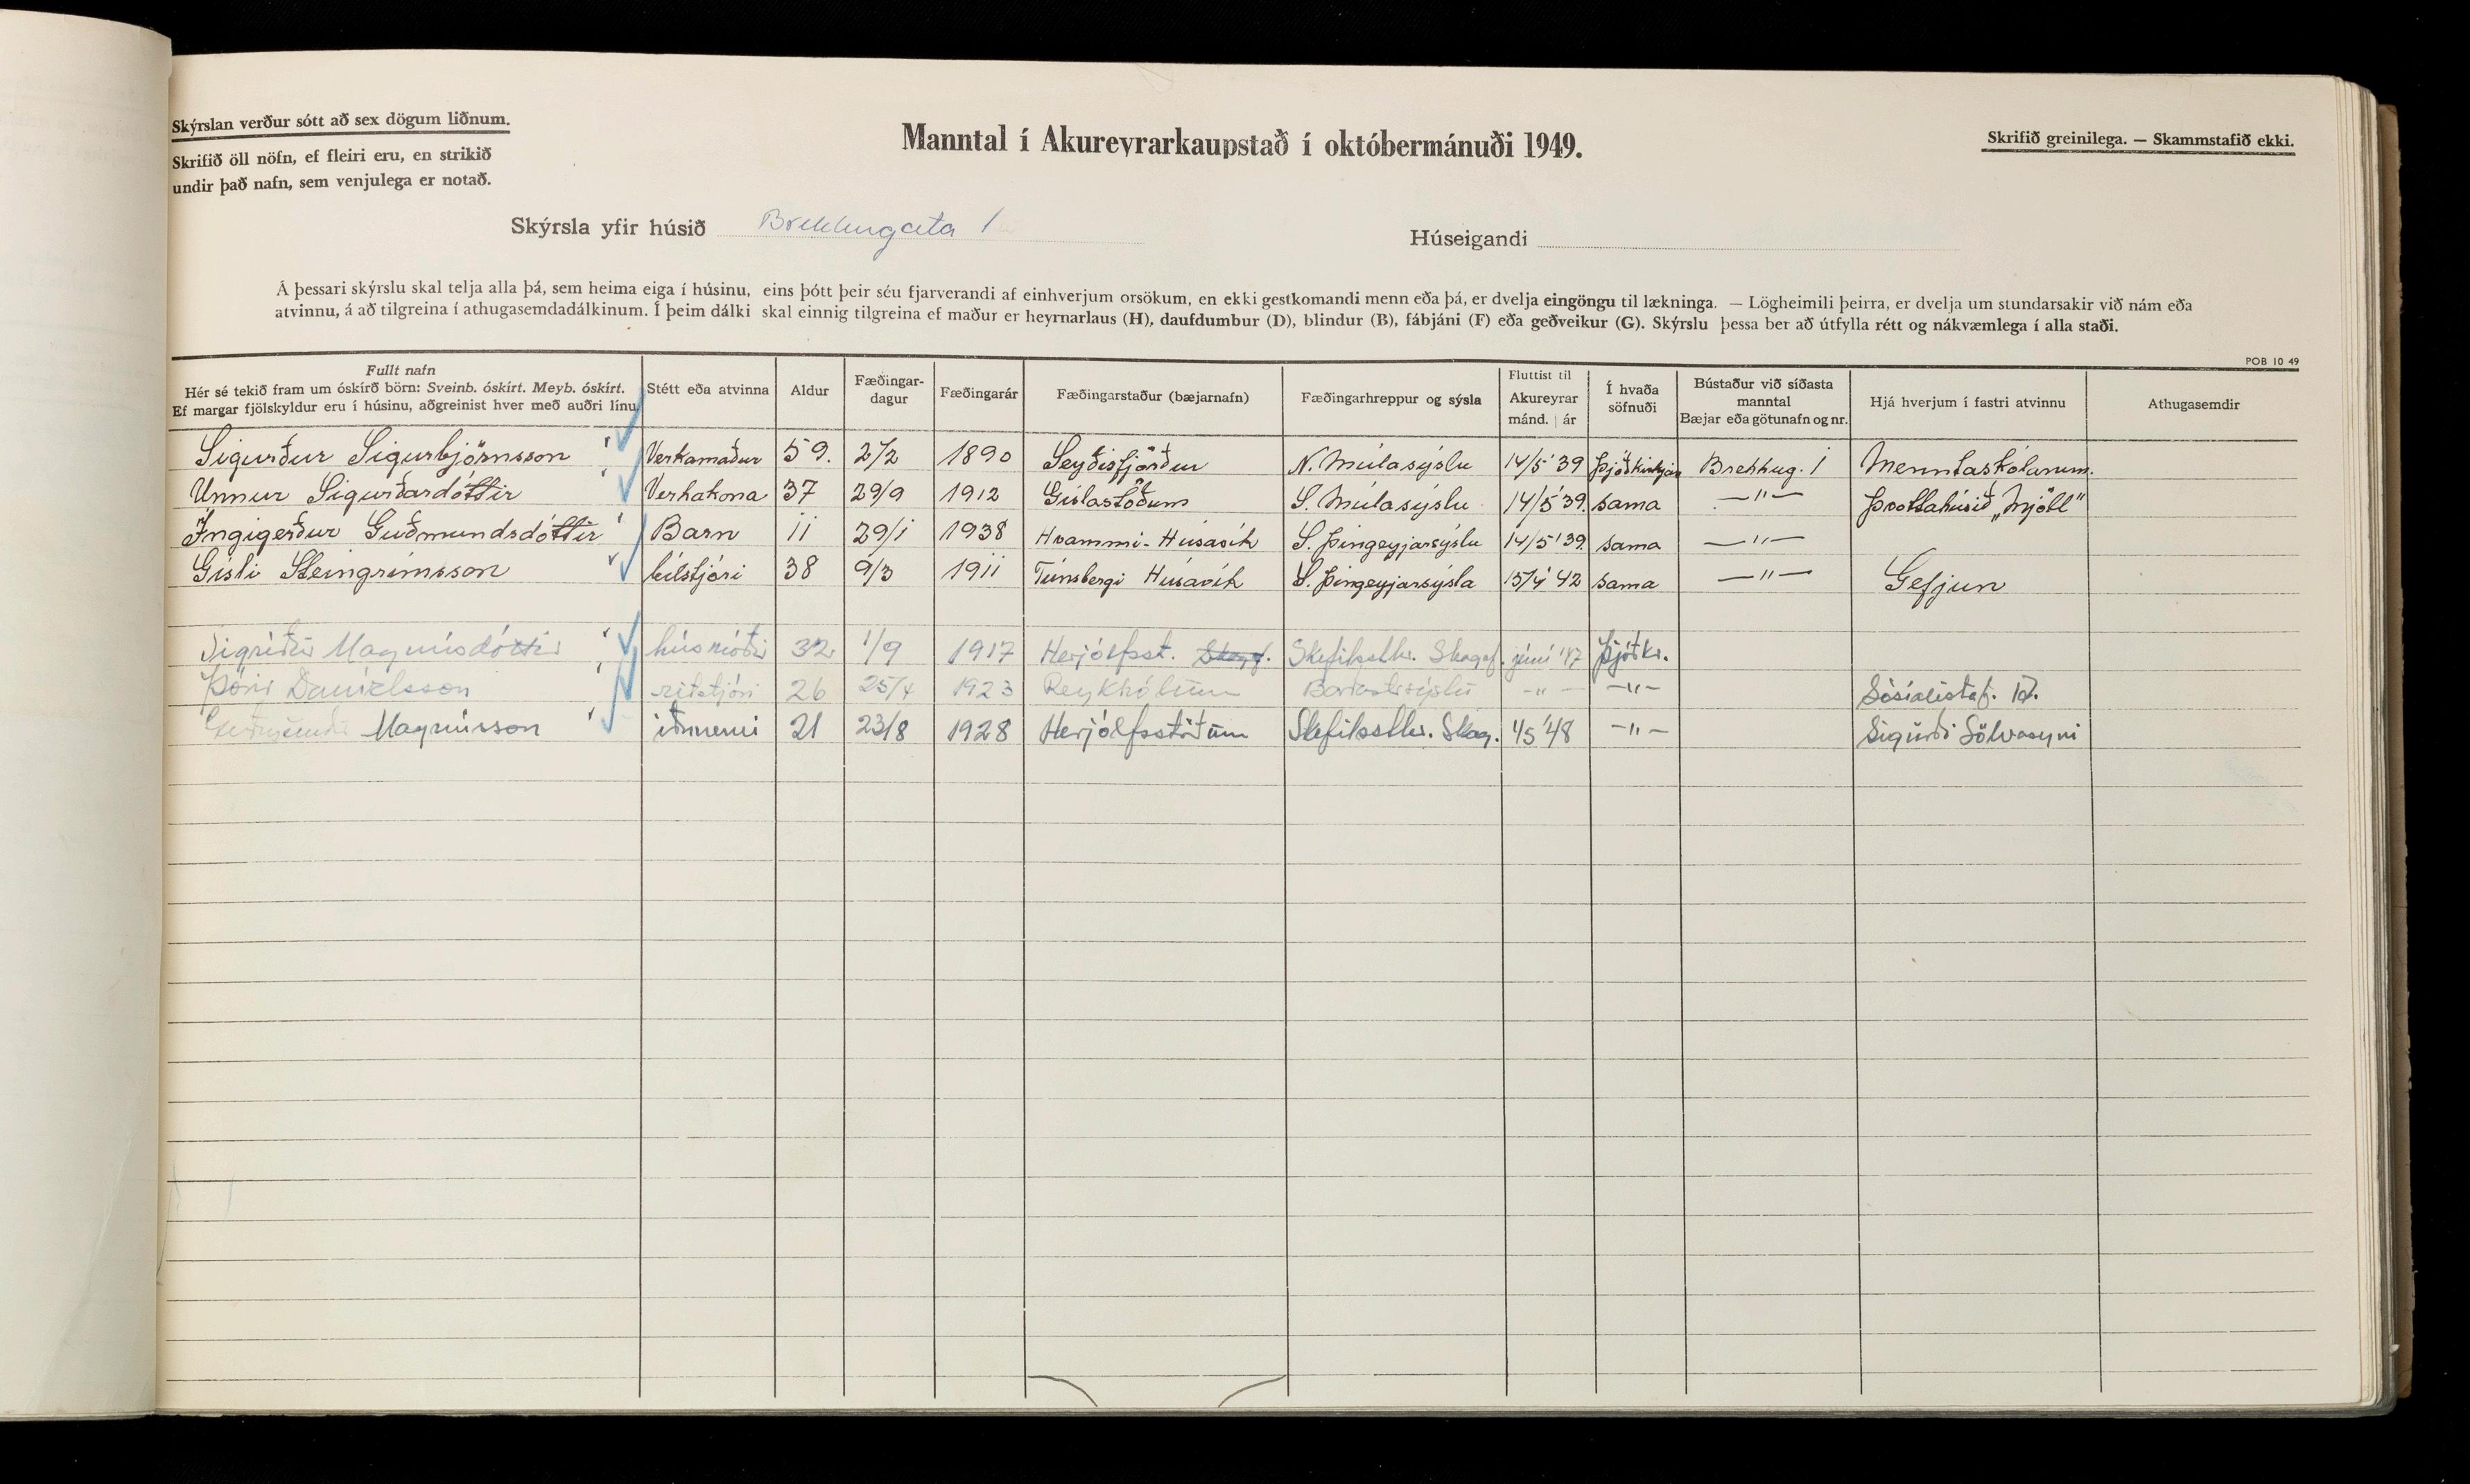 Skýrslan verður sótt að sex dögum liðnum.
Skrifið öll nöfn, ef fleiri eru, en strikið
undir það nafn, sem venjulega er notað.
Manntal í Akureyrarkaupstað í októbermánuði 1949.
Skrifið greinilega. — Skammstafið ekki.
Skýrsla yfir húsið Brekkugata 1 Húseigandi
Á þessari skýrslu skal telja alla þá, sem heima eiga í húsinu, eins þótt þeir séu fjarverandi af einhverjum orsökum, en ekki gestkomandi menn eða þá, er dvelja eingöngu til lækninga. — Lögheimili þeirra, er dvelja um stundarsakir við nám eða
atvinnu, á að tilgreina í athugasemdadálkinum. Í þeim dálki skal einnig tilgreina ef maður er heyrnarlaus (H), daufdumbur (D), blindur (B), fábjáni (F) eða geðveikur (G). Skýrslu þessa ber að útfylla rétt og nákvæmlega í alla staði.
POB 10 49
Fullt nafn
Hér sé tekið fram um óskírð börn: Sveinb. óskírt. Meyb. óskírt.
Ef margar fjölskyldur eru í húsinu, aðgreinist hver með auðri línu.
Stétt eða atvinna
Aldur
Fæðingar-
dagur
Fæðingarár
Fæðingarstaður (bæjarnafn)
Fæðingarhreppur og sýsla
Fluttist til
Akureyrar
mánd. | ár
Í hvaða
söfnuði
Bústaður við síðasta
manntal
Bæjar eða götunafn og nr.
Hjá hverjum í fastri atvinnu
Athugasemdir
Sigurður Sigurbjörnsson Verkamaður 59. 2/2 1890 Seyðisfjörður N. Múlasýslu 14/5 '39 Brekkug. 1 Menntaskólanum.
Unnur Sigurðardóttir Verkakona 37 29/9 1912 Gíslastöðum S. Múlasýslu 14/5 '39. sama —"— Þvottahúsið „Mjöll"
Ingigerður Guðmundsdóttir Barn 11 29/1 1938 Hvammi - Húsavík S. Þingeyjarsýslu 14/5 '39. sama —"—
Gísli Steingrímsson bílstjóri 38 9/3 1911 Túnsbergi Húsavík S. Þingeyjarsýsla 15/4 '42 sama —"— Gefjun
Sigríður Magnúsdóttir húsmóðir 32 1/9 1917 Herjólfsst. Skag. Skefilssthr. Skagaf. júní '47 Þjóðkr.
Þórir Daníelsson ritstjóri 26 25/4 1923 Reykhólum -"- -"- Sósíalistaf.
Guðmundur Magnússon iðnnemi 21 23/8 1928 Herjólfsstöðum Skefilssthr. Skag. 1/5 '48 -"- Sigurði Sölvasyni